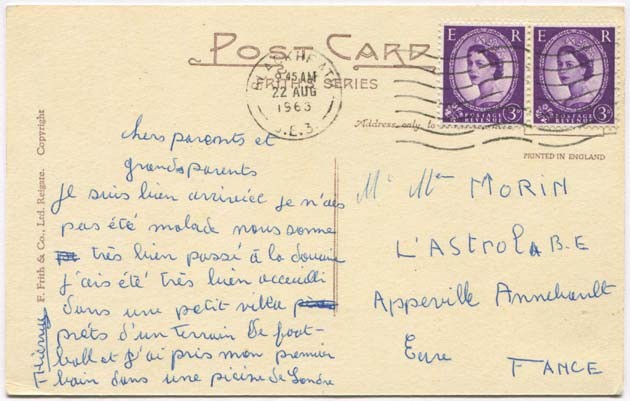 POST CARD
FRITH'S SERIES
BLACKHEATH
9.45 AM
22 AUG
1963
S.E.3.
E R
POSTAGE
REVENUE
3D
E R
POSTAGE
REVENUE
3D
Address only to
PRINTED IN ENGLAND
F. Frith & Co., Ltd. Reigate. Copyright
chers parents et
grands parents
je suis bien arrivée je n'ais
pas été malade nous sonne
très bien passé à la douane
j'ais été très bien acceuilli
dans une petit villa
prèts d'un terrain De foot-
ball et j'ai pris mon premier
bain dans une picine de Londre
Thierry
Mr Mme MORIN
L'ASTROLABE
Appeville Annebault
Eure FRANCE